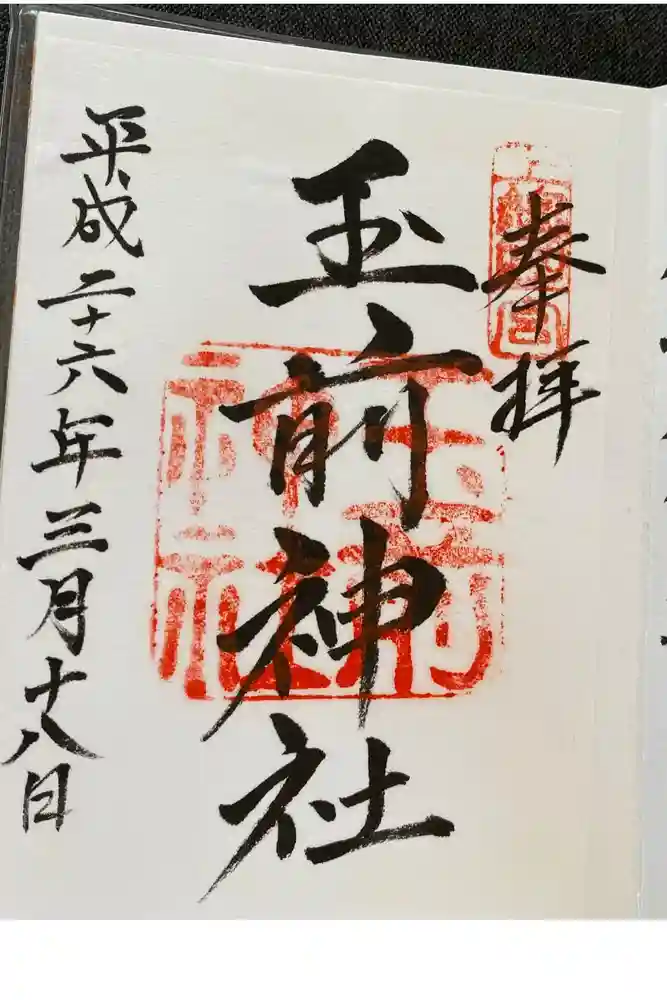 奉拝
玉前神社
平成二十六年三月十八日
玉前
神社